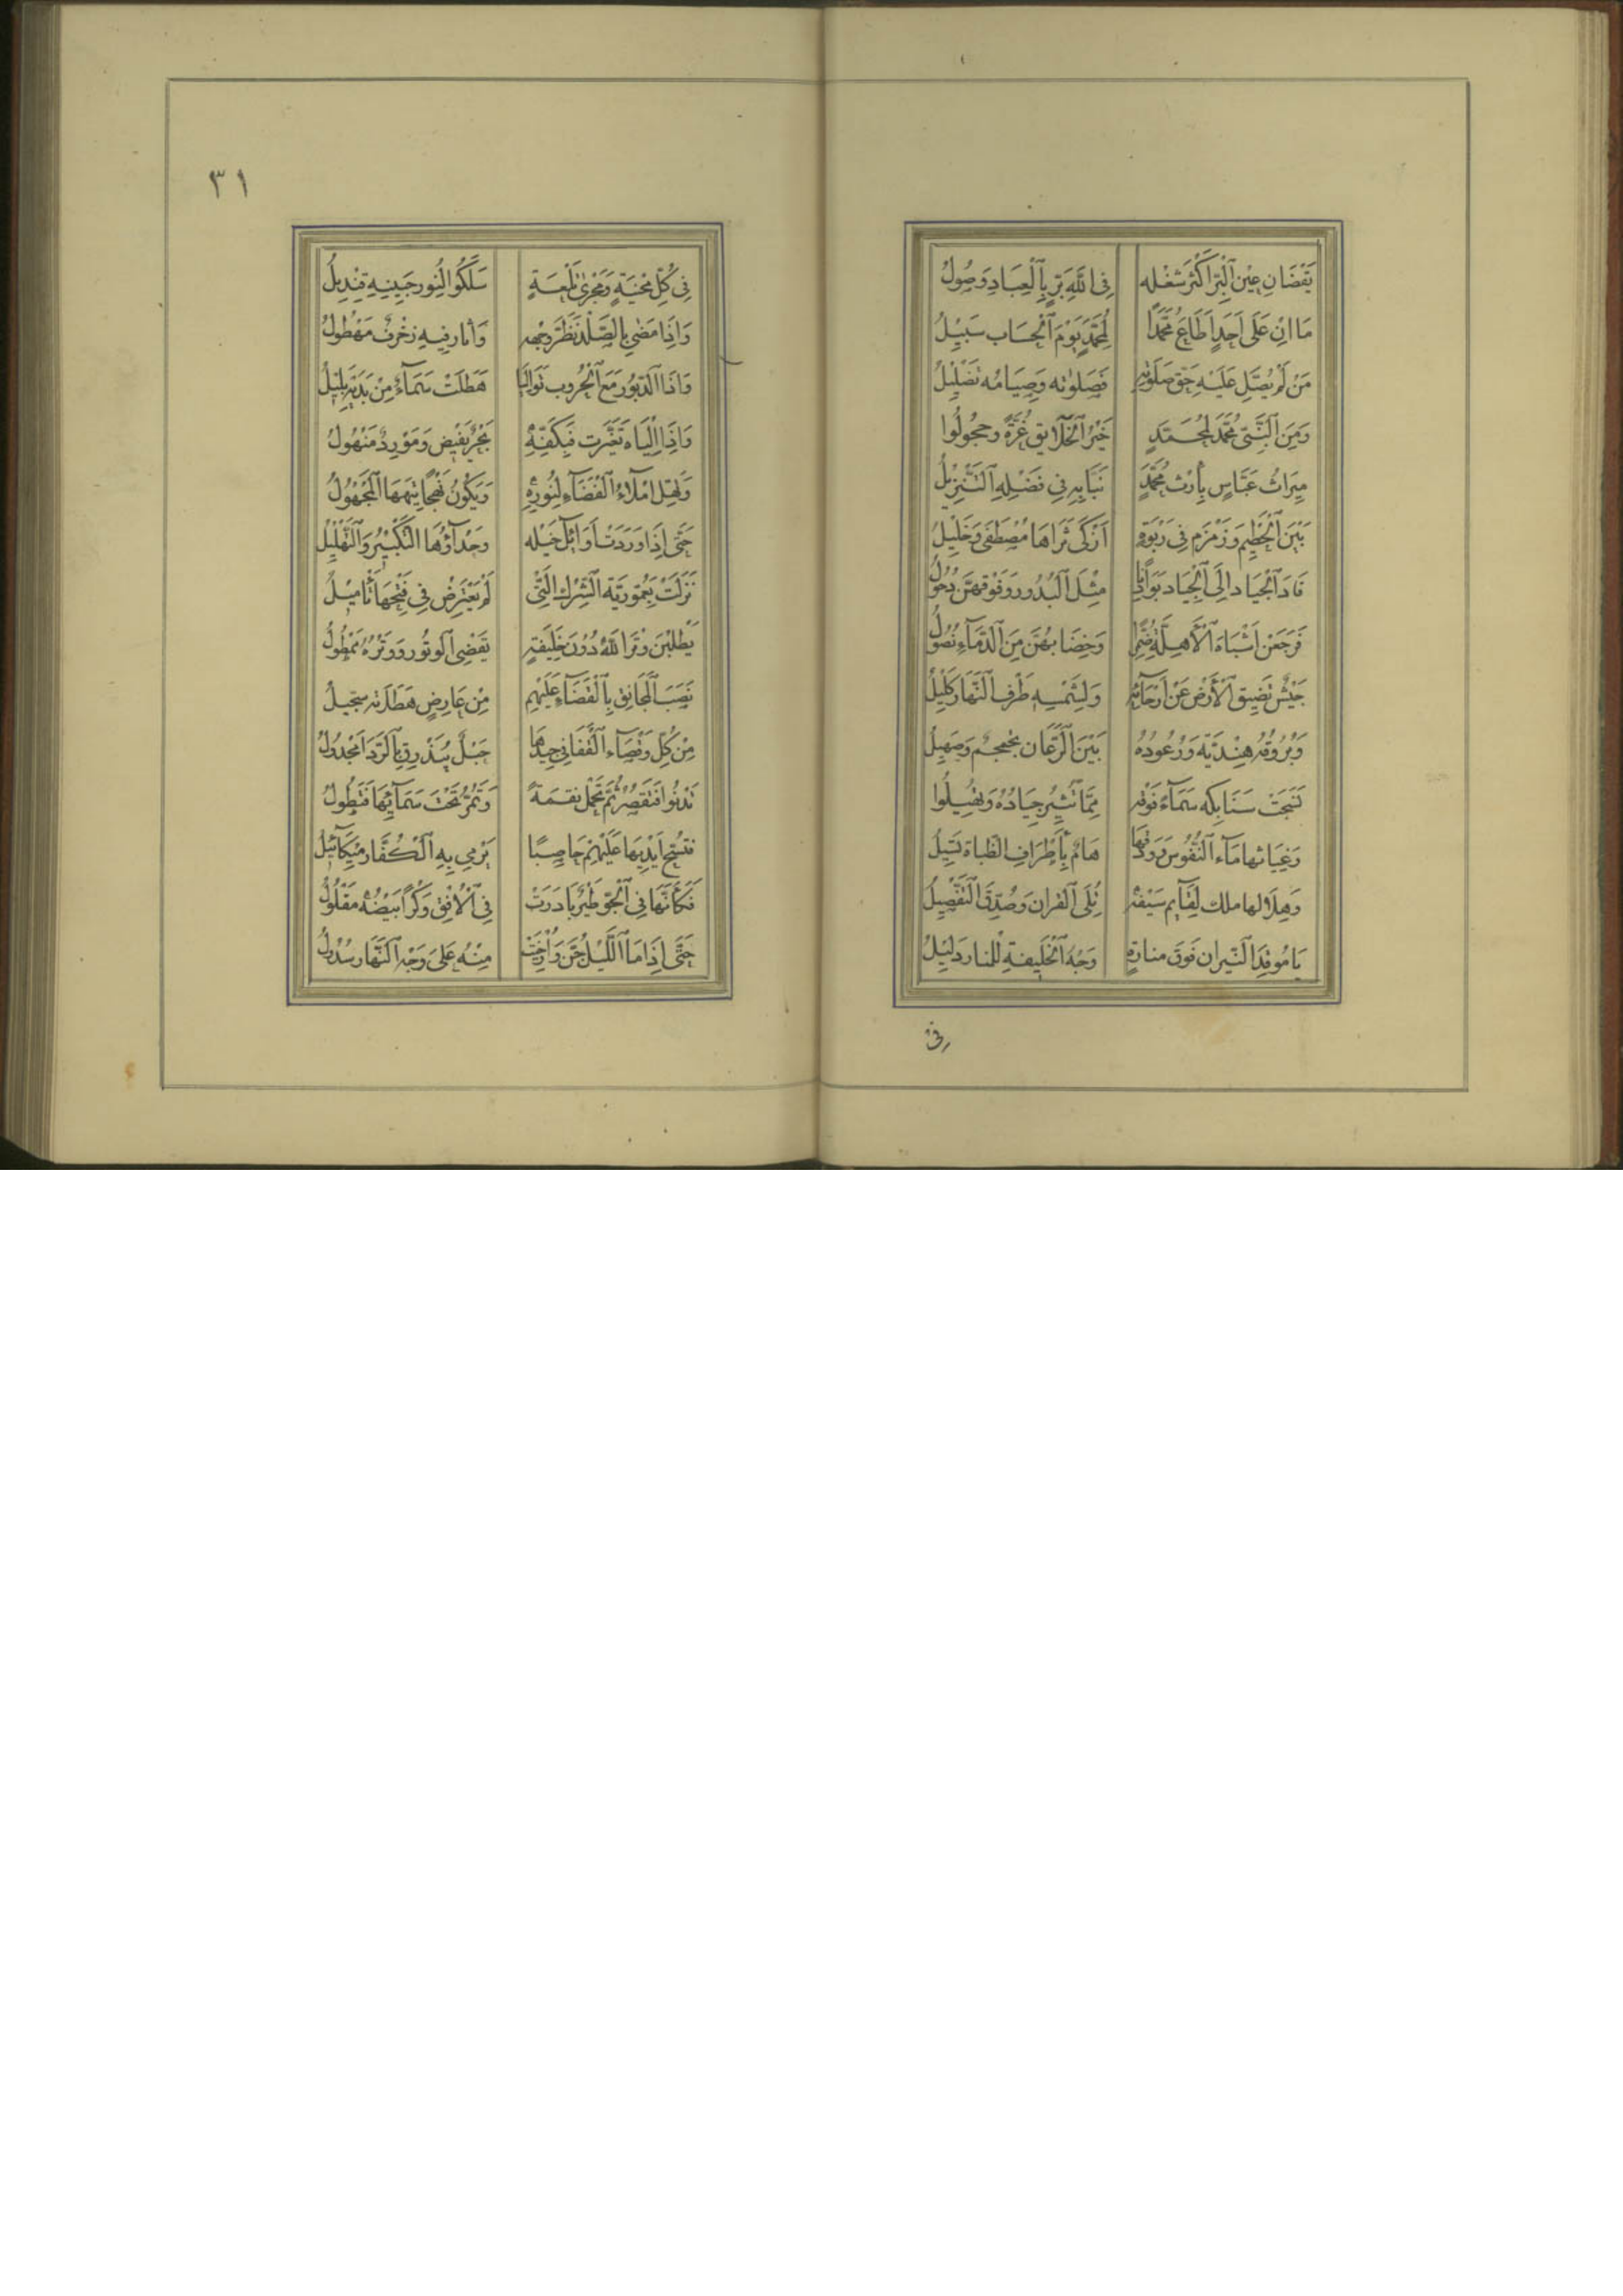 يَقْضَانِ عَيْنِ الْبِرِّ أَكْثَرُ شُغْلِهِ فِي اللَّهِ بَرٌّ بِالْعِبَادِ وَصُولُ
مَا انِ عَلَى أَحَدٍ أَطَاعَ مُحَمَّدًا لِمُحَمَّدٍ يَوْمَ الْحِسَابِ سَبِيلُ
مَنْ لَمْ يُصَلِّ عَلَيْهِ حَقَّ صَلَوتِهِ فَصَلَوتُه وَصِيَامُه تَضْلِيلُ
وَمِنَ النَّبِيِّ مُحَمَّدٍ لِمُحَمَّدٍ خَيْرُ الْخَلَائِقِ غُرَّةٌ وَحُجُولُوا
مِيرَاثُ عَبَّاسٍ بِأَرْثِ مُحَمَّدٍ نَبَّا بِهِ فِي فَضْلِهِ التَّنْزِيلُ
بَيْنَ الْحَطِيمِ وَزَمْزَمٍ فِي رَبْوَةٍ أَزْكَى ثَرَاهَا مُصْطَفَى وَخَلِيلُ
قَادَ الْجِيَادَ إِلَى الْجِيَادِ بَوَادِيًا مِثْلَ الْبُدُورِ وَفَوْقَهُنَّ ذُحُولُ
فَرَجَعْنَ أَشْبَاهَ الْأَهِلَّةِ ضُمَّرًا وَخِضَابُهُنَّ مِنَ الدِّمَاءِ نُصُولُ
جَيْشٌ تَضِيقُ الْأَرْضُ عَنْ أَرْجَائِهِ وَلِشَمْسِهِ طَرْفُ النَّهَارِ كَلِيلُ
وَبُرُوقُهُ هِنْدِيَّةٌ وَرُعُودُهُ بَيْنَ الرِّعَانِ تَحَمْحُمٌ وَصَهِيلُ
نَسَجَتْ سَنَابِكُه سَمَاءً فَوْقَهُ مِمَّا تُثِيرُ جِيَادُهُ وَتُهِيلُوا
وَغِيَاثُهَا مَاءُ النُّفُوسِ وَوَدْقُهَا هَامٌ بِأَطْرَافِ الظُّبَاةِ تَسِيلُ
وَهِذَا لها ملك لِقَايِم سَيْفِهِ تُلَى القران وَصُدِّقَ التَّفْصِيلُ
يَا مُوقِدَ النِّيرانِ فَوْقَ منارةٍ وَجْهُ الْخَلِيفَةِ لِلْمنار دَلِيلُ
فى
٣١
فِي كُلِّ مَحْنِيَةٍ وَمَجْرَى تَلْعَةٍ سَلَكُوا لِنُورِ جَبِينِهِ قِنْدِيلُ
وَإِذَا مَضَى بِالصَّلْدِ نَظَّرَ وَجْهَهُ وَأنار فِيهِ زُخْرُفٌ مَهْطُولُ
وَإِذَا الدَّبُورُ مَعَ الْحُرُوبِ تَوَالَيَا هَطَلَتْ سَمَاءٌ مِنْ يَدَيْهِ بَلِيلُ
وَإِذَا الْمِيَاهُ تَغَيَّرَتْ فَبِكَفِّهِ بَحْرٌ يَفِيضُ وَمَوْرِدٌ مَنْهُولُ
املاءُ الْفَضَاءِ لِنُورِهِ وَيَكُونُ نَهْجًا تِيهُهَا الْمَجْهُولُ
حَتَّى إِذَا وَرَدَتْ أَوَائِلُ خَيْلِه وَحُدَاؤُهَا التَّكْبِيرُ وَالتَّهْلِيلُ
نَزَلَتْ بِعَمُّورِيَّةِ الشِّرْكِ الَّتِي لَمْ يَعْتَرِضْ فِي فَتْحِهَا تَأْمِيلُ
يَطْلُبْنَ وَتْرَ اللَّهِ دُونَ خَلِيفَةٍ يَقْضِي الْوُتُورَ وَوَتْرُهُ مَمْطُولُ
نَصَبَ الْمَجَانِقَ بِالْفَضَاءِ عَلَيْهِمِ مِنْ عَارِضٍ هَطَلَاتُهُ سِجِّيلُ
مِنْ كُلِّ وَقْصَاءِ الْقَفَا فِي جِيدِهَا حَبْلٌ بِالرَّدَا مَجْدُولُ
تَدْنُوا فَتَقْصُرُ ثُمَّ تَحْمِلُ نِقْمَةً وَتَمُرُّ تَحْتَ سَمَائِهَا فَتَطُولُ
فَتَسُحُّ أَيْدِيهَا عَلَيْهِمْ حَاصِبًا يَرْمِي بِهِ الْكُفَّارَ مِيكَائِيلُ
فَكَأَنَّهَا فِي الْجَوِّ طَيْرٌ بَادَرَتْ فِي الْأُفْقِ وَكْرًا بَيْضُهُ مَفْلُولُ
حَتَّى إِذَا مَا اللَّيْلُ جَنَّ وَأُرْخِيَتْ مِنْهُ عَلَى وَجْهِ النَّهَارِ سُدُولُ